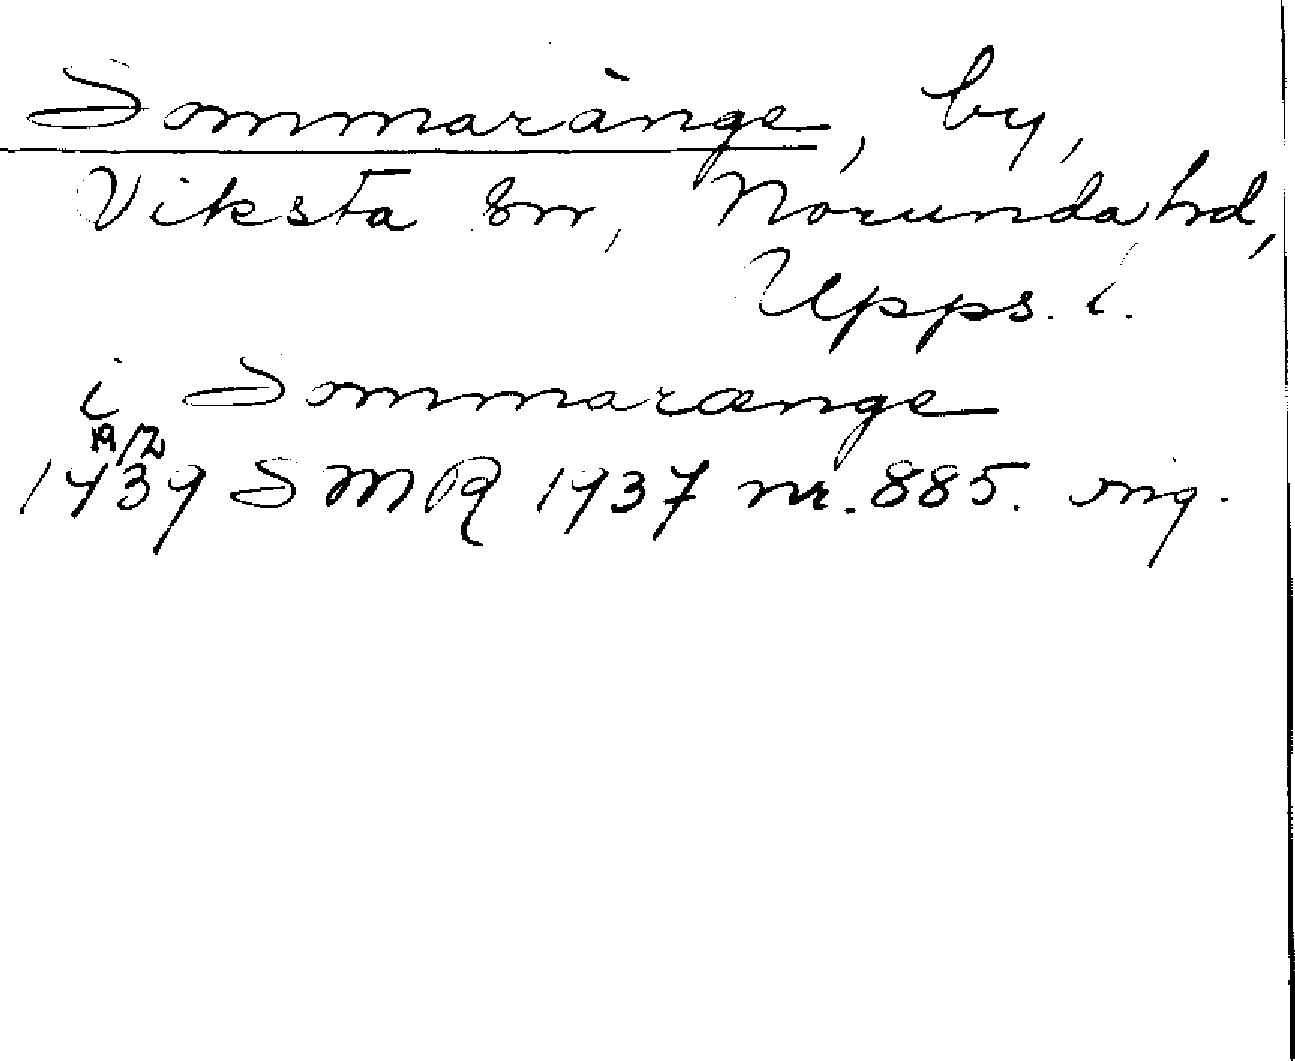 Sommaränge, by,
Viksta sn, Norunda hd,
Upps. l.
i Sommarænge
19/2
1439 SMR 1937 nr. 885. orig.